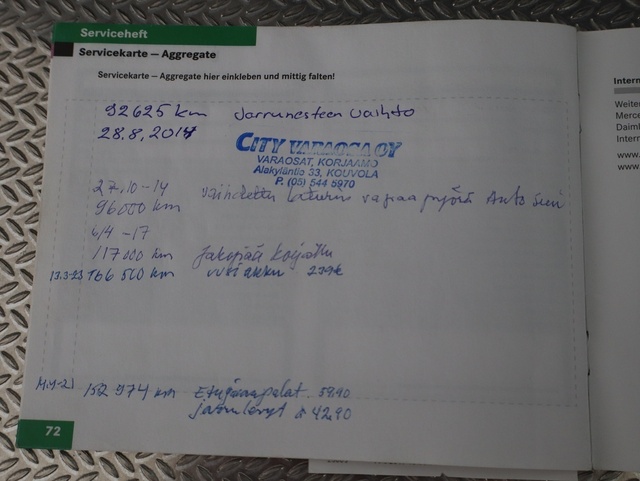 Serviceheft
Servicekarte – Aggregate
Servicekarte – Aggregate hier einkleben und mittig falten!
92625 km Jarrunesteen vaihto
28.8.2014
CITY VARAOSA OY
VARAOSAT, KORJAAMO
Alakyläntie 33, KOUVOLA
P. (05) 544 5970
27.10-14 vaihdettu laturin vapaa pyörä Auto
96000 km
4/4-17
117000 km Jakopää korjattu
13.3-23 166 500 km uusi akku 239€
152 974 km Etujarrupalat 59.90
jarrulevyt á 42.90
72
Intern
Weiter
Merce
Daiml
Intern
www.
www.